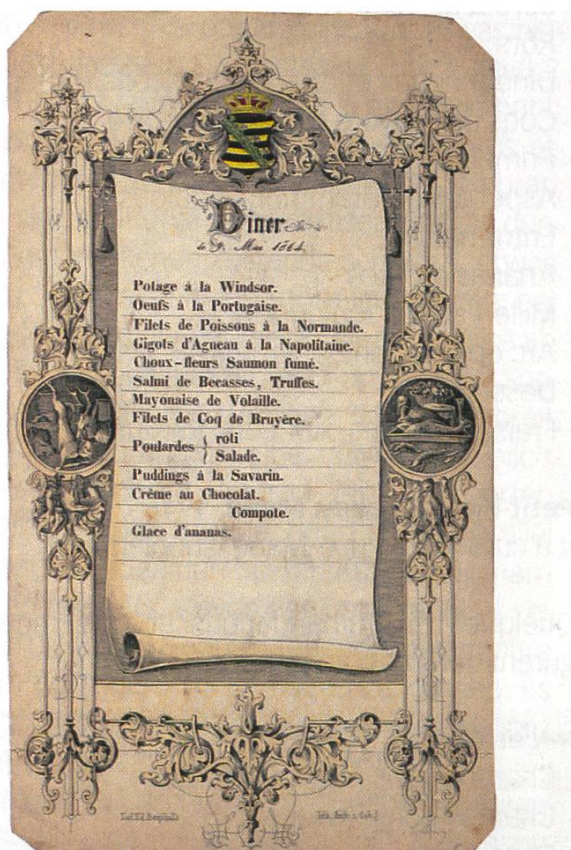 Diner
le 9. Mai 1864
Potage à la Windsor.
Oeufs à la Portugaise.
Filets de Poissons à la Normande.
Gigots d'Agneau à la Napolitaine.
Choux-fleurs Saumon fumé.
Salmi de Becasses, Truffes.
Mayonaise de Volaille.
Filets de Coq de Bruyère.
Poulardes { roti
Salade.
Puddings à la Savarin.
Crême au Chocolat.
Compote.
Glace d'ananas.